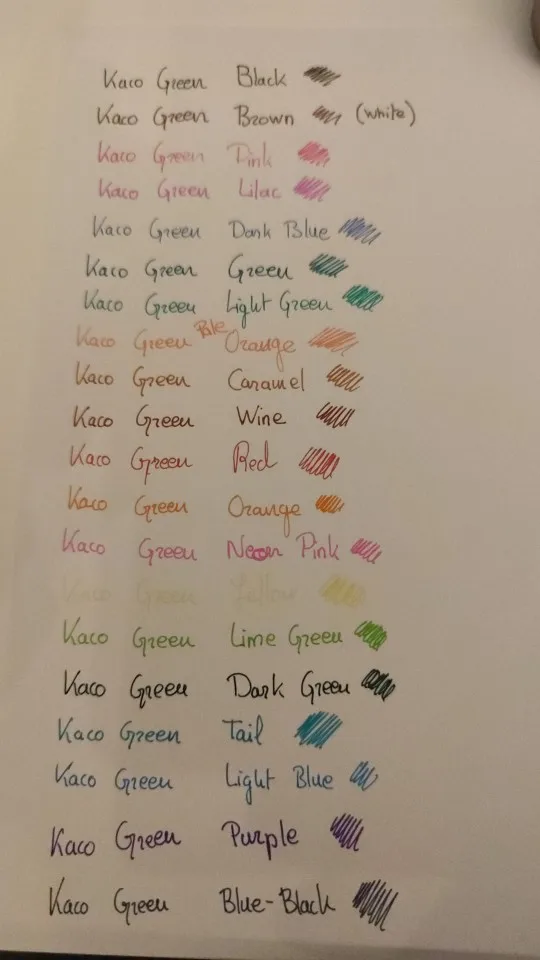 Kaco Green Black
Kaco Green Brown (white)
Kaco Green Pink
Kaco Green Lilac
Kaco Green Dark Blue
Kaco Green Green
Kaco Green Light Green
Kaco Green Pale Orange
Kaco Green Caramel
Kaco Green Wine
Kaco Green Red
Kaco Green Orange
Kaco Green Neon Pink
Kaco Green Yellow
Kaco Green Lime Green
Kaco Green Dark Green
Kaco Green Tail
Kaco Green Light Blue
Kaco Green Purple
Kaco Green Blue-Black